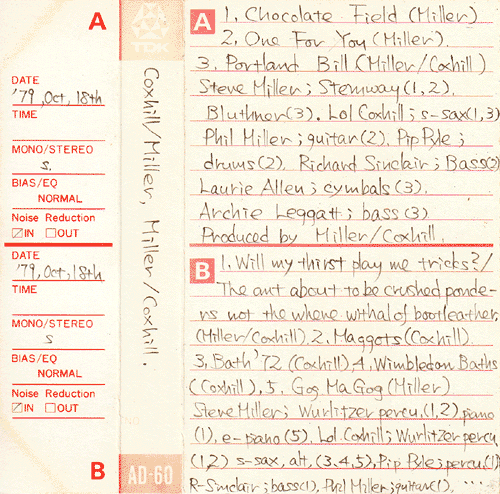 A
DATE
'79, Oct, 18th
TIME
MONO/STEREO
s.
BIAS/EQ
NORMAL
Noise Reduction
☑IN ☐OUT
DATE
'79, Oct, 18th
TIME
MONO/STEREO
s
BIAS/EQ
NORMAL
Noise Reduction
☑IN ☐OUT
B
TDK
Coxhill/Miller, Miller/Coxhill.
AD-60
A 1, Chocolate Field (Miller)
2, One For You (Miller).
3, Portland Bill (Miller/Coxhill)
Steve Miller; Sternway (1, 2).
Bluthnor (3). Lol Coxhill; s-sax (1, 3)
Phil Miller; guitar (2). Pip Pyle;
drums (2). Richard Sinclair; Bass(2)
Laurie Allen; cymbals (3).
Archie Leggatt; bass (3)
Produced by Miller/Coxhill.
B 1, Will my thirst play me tricks?/
The ant about to be crushed ponde-
rs not the where withal of bootleather,
(Miller/Coxhill). 2, Maggots (Coxhill).
3, Bath '72 (Coxhill), 4, Wimbledon Baths
(Coxhill), 5, Gog Ma Gog (Miller)
Steve Miller; Wurlitzer percu, (1, 2) piano
(1), e-piano (5), Lol Coxhill; Wurlitzer percu
(1, 2) s-sax, alt, (3, 4, 5), Pip Pyle; percu, (1)
R-Sinclair; bass (1), Phil Miller; guitar (1), ....